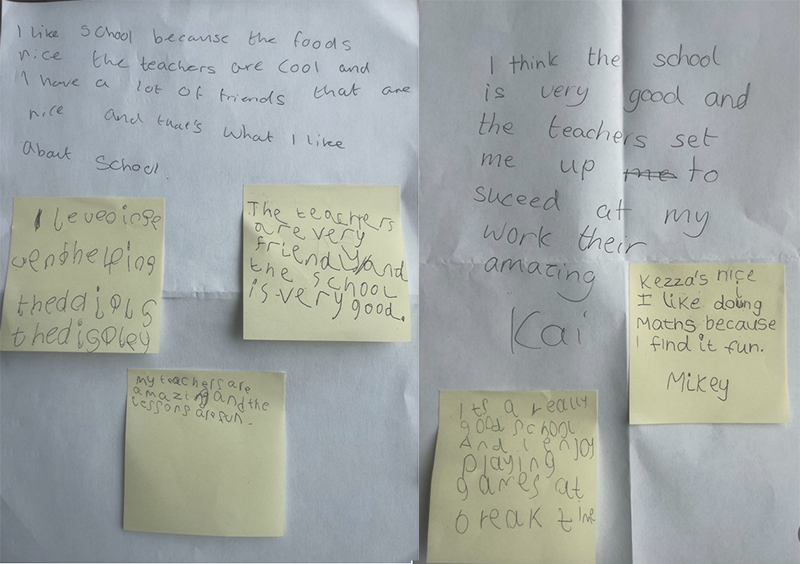 I like school because the foods
nice the teachers are cool and
I have a lot of friends that are
nice and that's what I like
about school.
The teachers
are very
friendly and
the school
is very good.
my teachers are
amazing and the
lessons are fun.
I think the school
is very good and
the teachers set
me up me to
suceed at my
work their
amazing
Kai
Kezza's nice
I like doing
Maths because
I find it fun.
Mikey
Its a really
good school
And I enjoy
playing
games at
break time